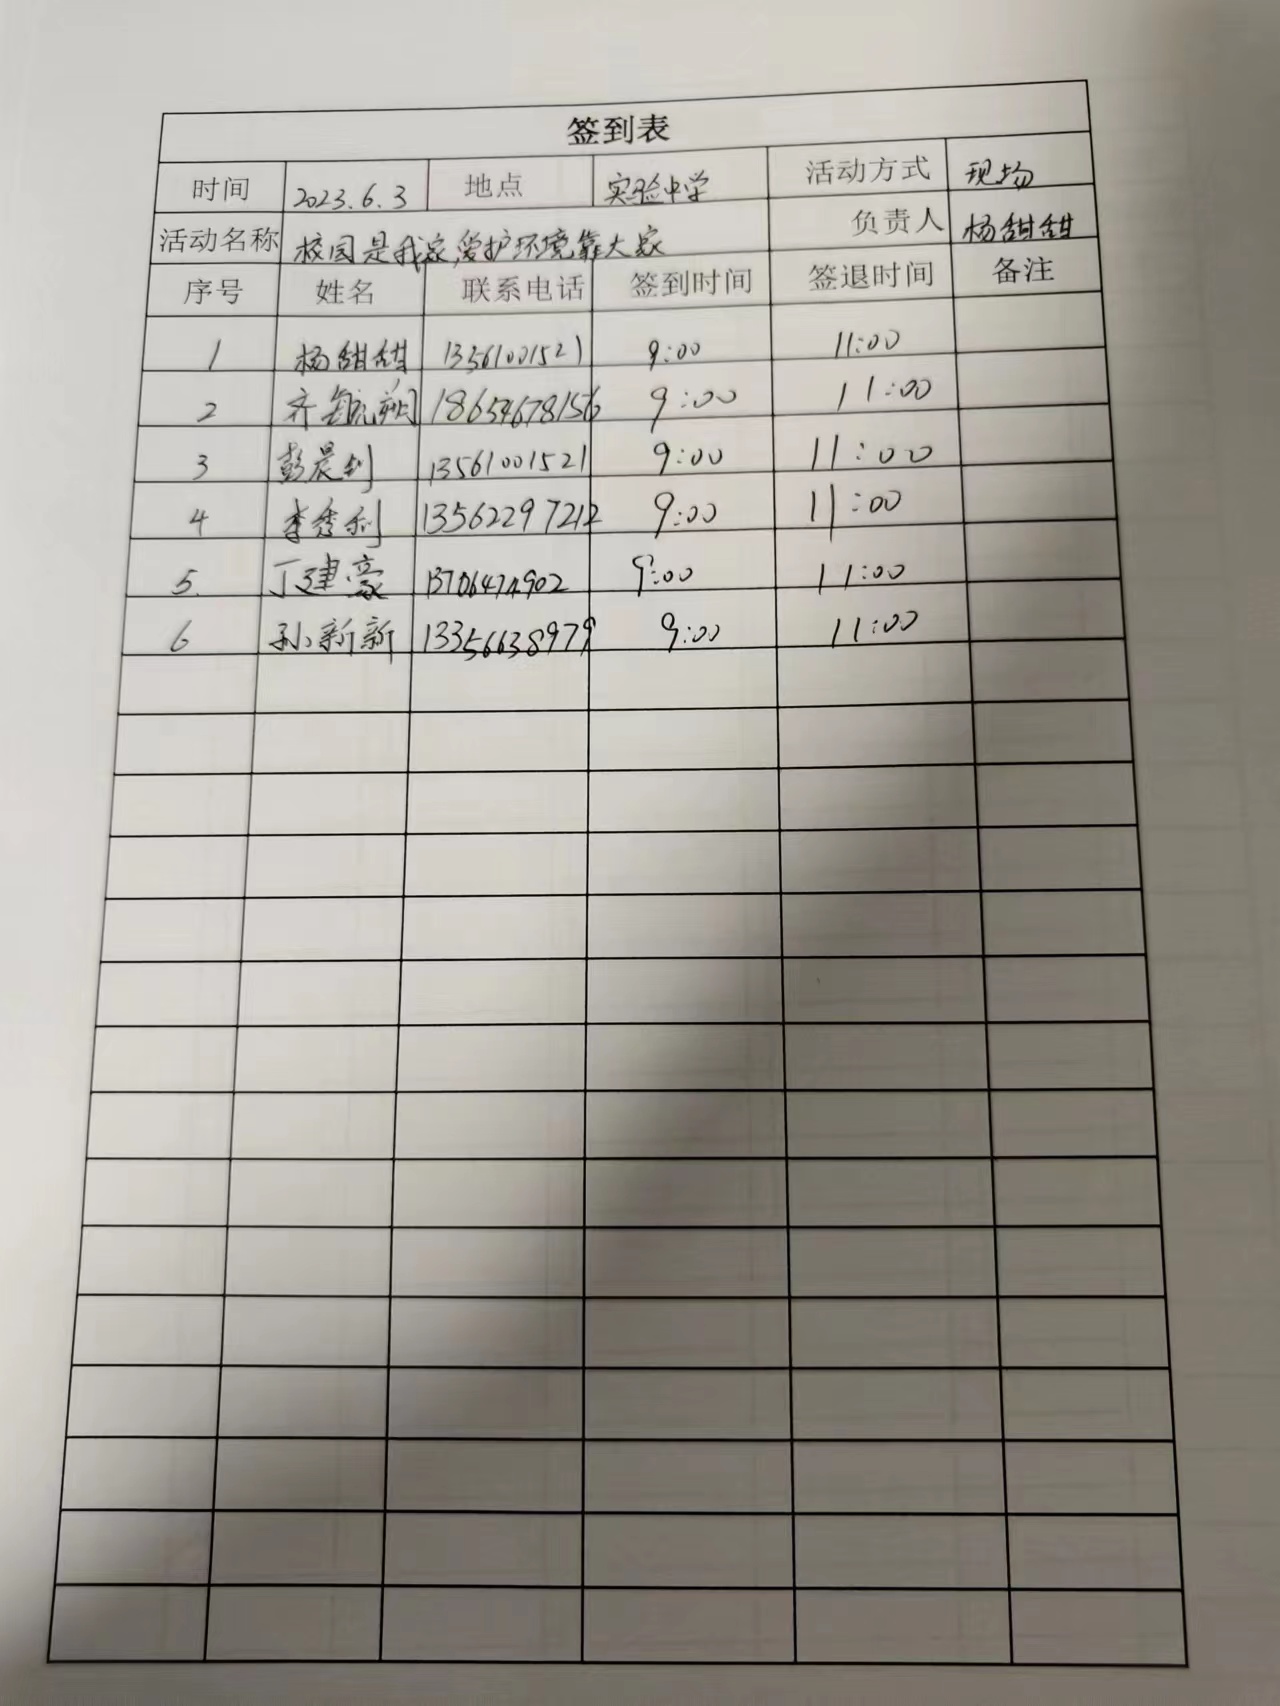 签到表
时间 2023.6.3 地点 实验中学 活动方式 现场
活动名称 校园是我家,爱护环境靠大家 负责人 杨甜甜
序号 姓名 联系电话 签到时间 签退时间 备注
1 杨甜甜 13561001521 9:00 11:00
2 齐毓翔 18654678156 9:00 11:00
3 彭晨钊 13561001521 9:00 11:00
4 李秀利 13562297212 9:00 11:00
5. 丁建豪 13706474902 9:00 11:00
6 孙新新 13356638979 9:00 11:00